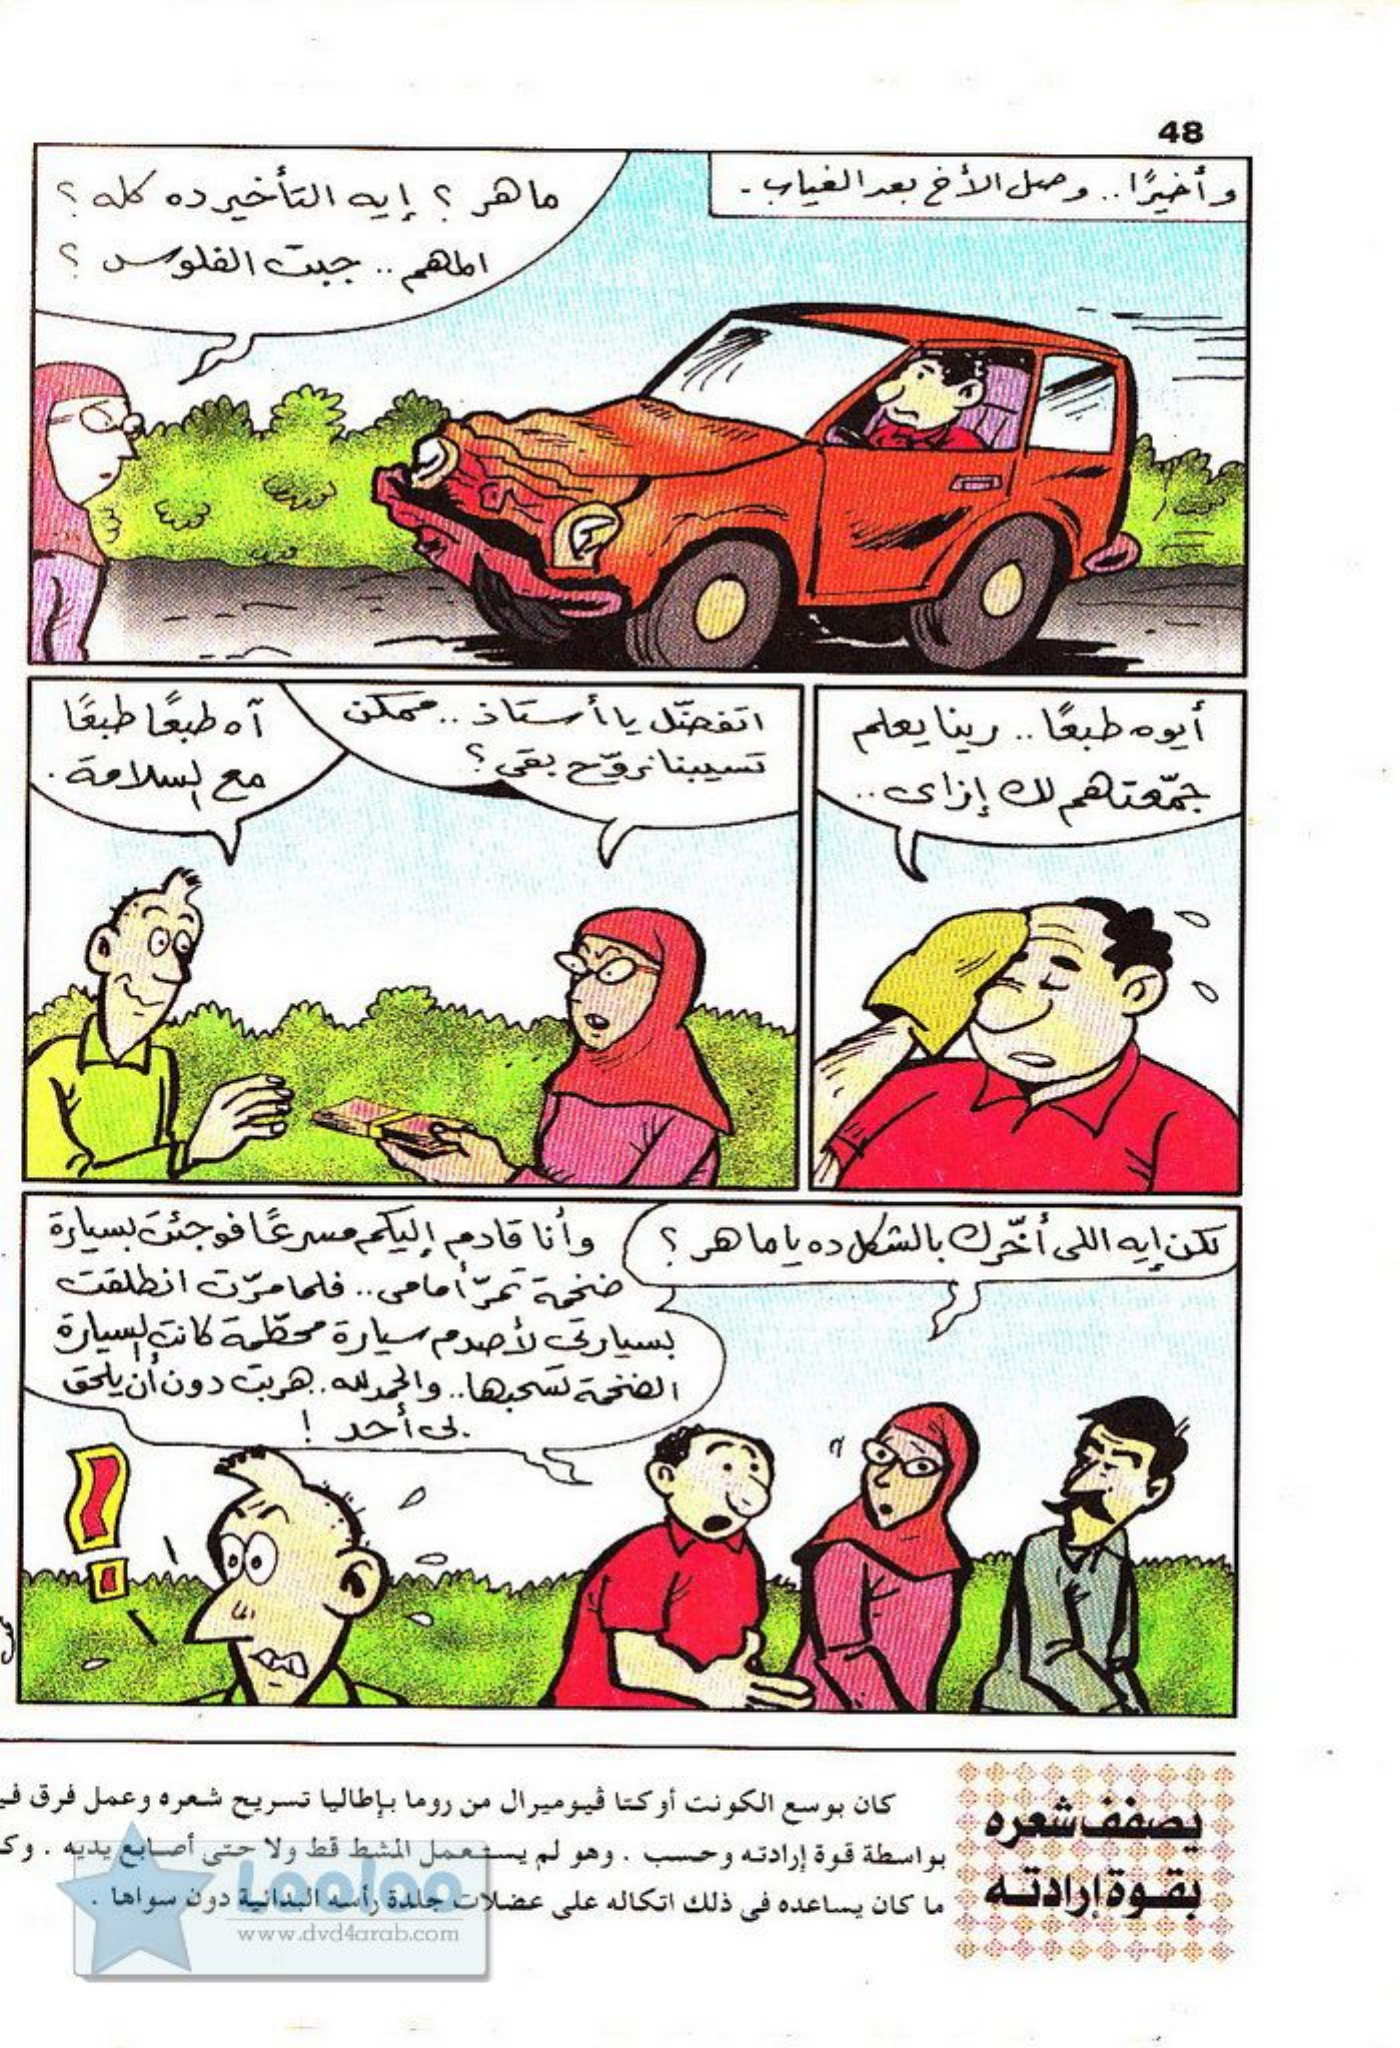 48
وأخيرًا.. وصل الأخ بعد الغياب.
ماهر؟ إيه التأخير ده كله؟
المهم.. جبت الفلوس؟
أيوه طبعًا.. ربنا يعلم
جمّعتهم لك إزاى..
اتفضّل يا أستاذ.. ممكن
تسيبنا نروّح بقى؟
آه طبعًا طبعًا
مع السلامة.
لكن إيه اللى أخّرك بالشكل ده يا ماهر؟
وأنا قادم إليكم مسرعًا فوجئت بسيارة
ضخمة تمرّ أمامى.. فلما مرّت انطلقت
بسيارتى لأصدم سيارة محطّمة كانت السيارة
الضخمة تسحبها.. والحمد لله.. هربت دون أن يلحق
بى أحد!
يصفف شعره
بقوة إرادته
كان بوسع الكونت أوكتا ڤيوميرال من روما بإطاليا تسريح شعره وعمل فرق
بواسطة قوة إرادته وحسب . وهو لم يستعمل المشط قط ولا حتى أصابع يديه .
ما كان يساعده فى ذلك اتكاله على عضلات جلدة رأسه البدانية دون سواها .
Looloo
www.dvd4arab.com